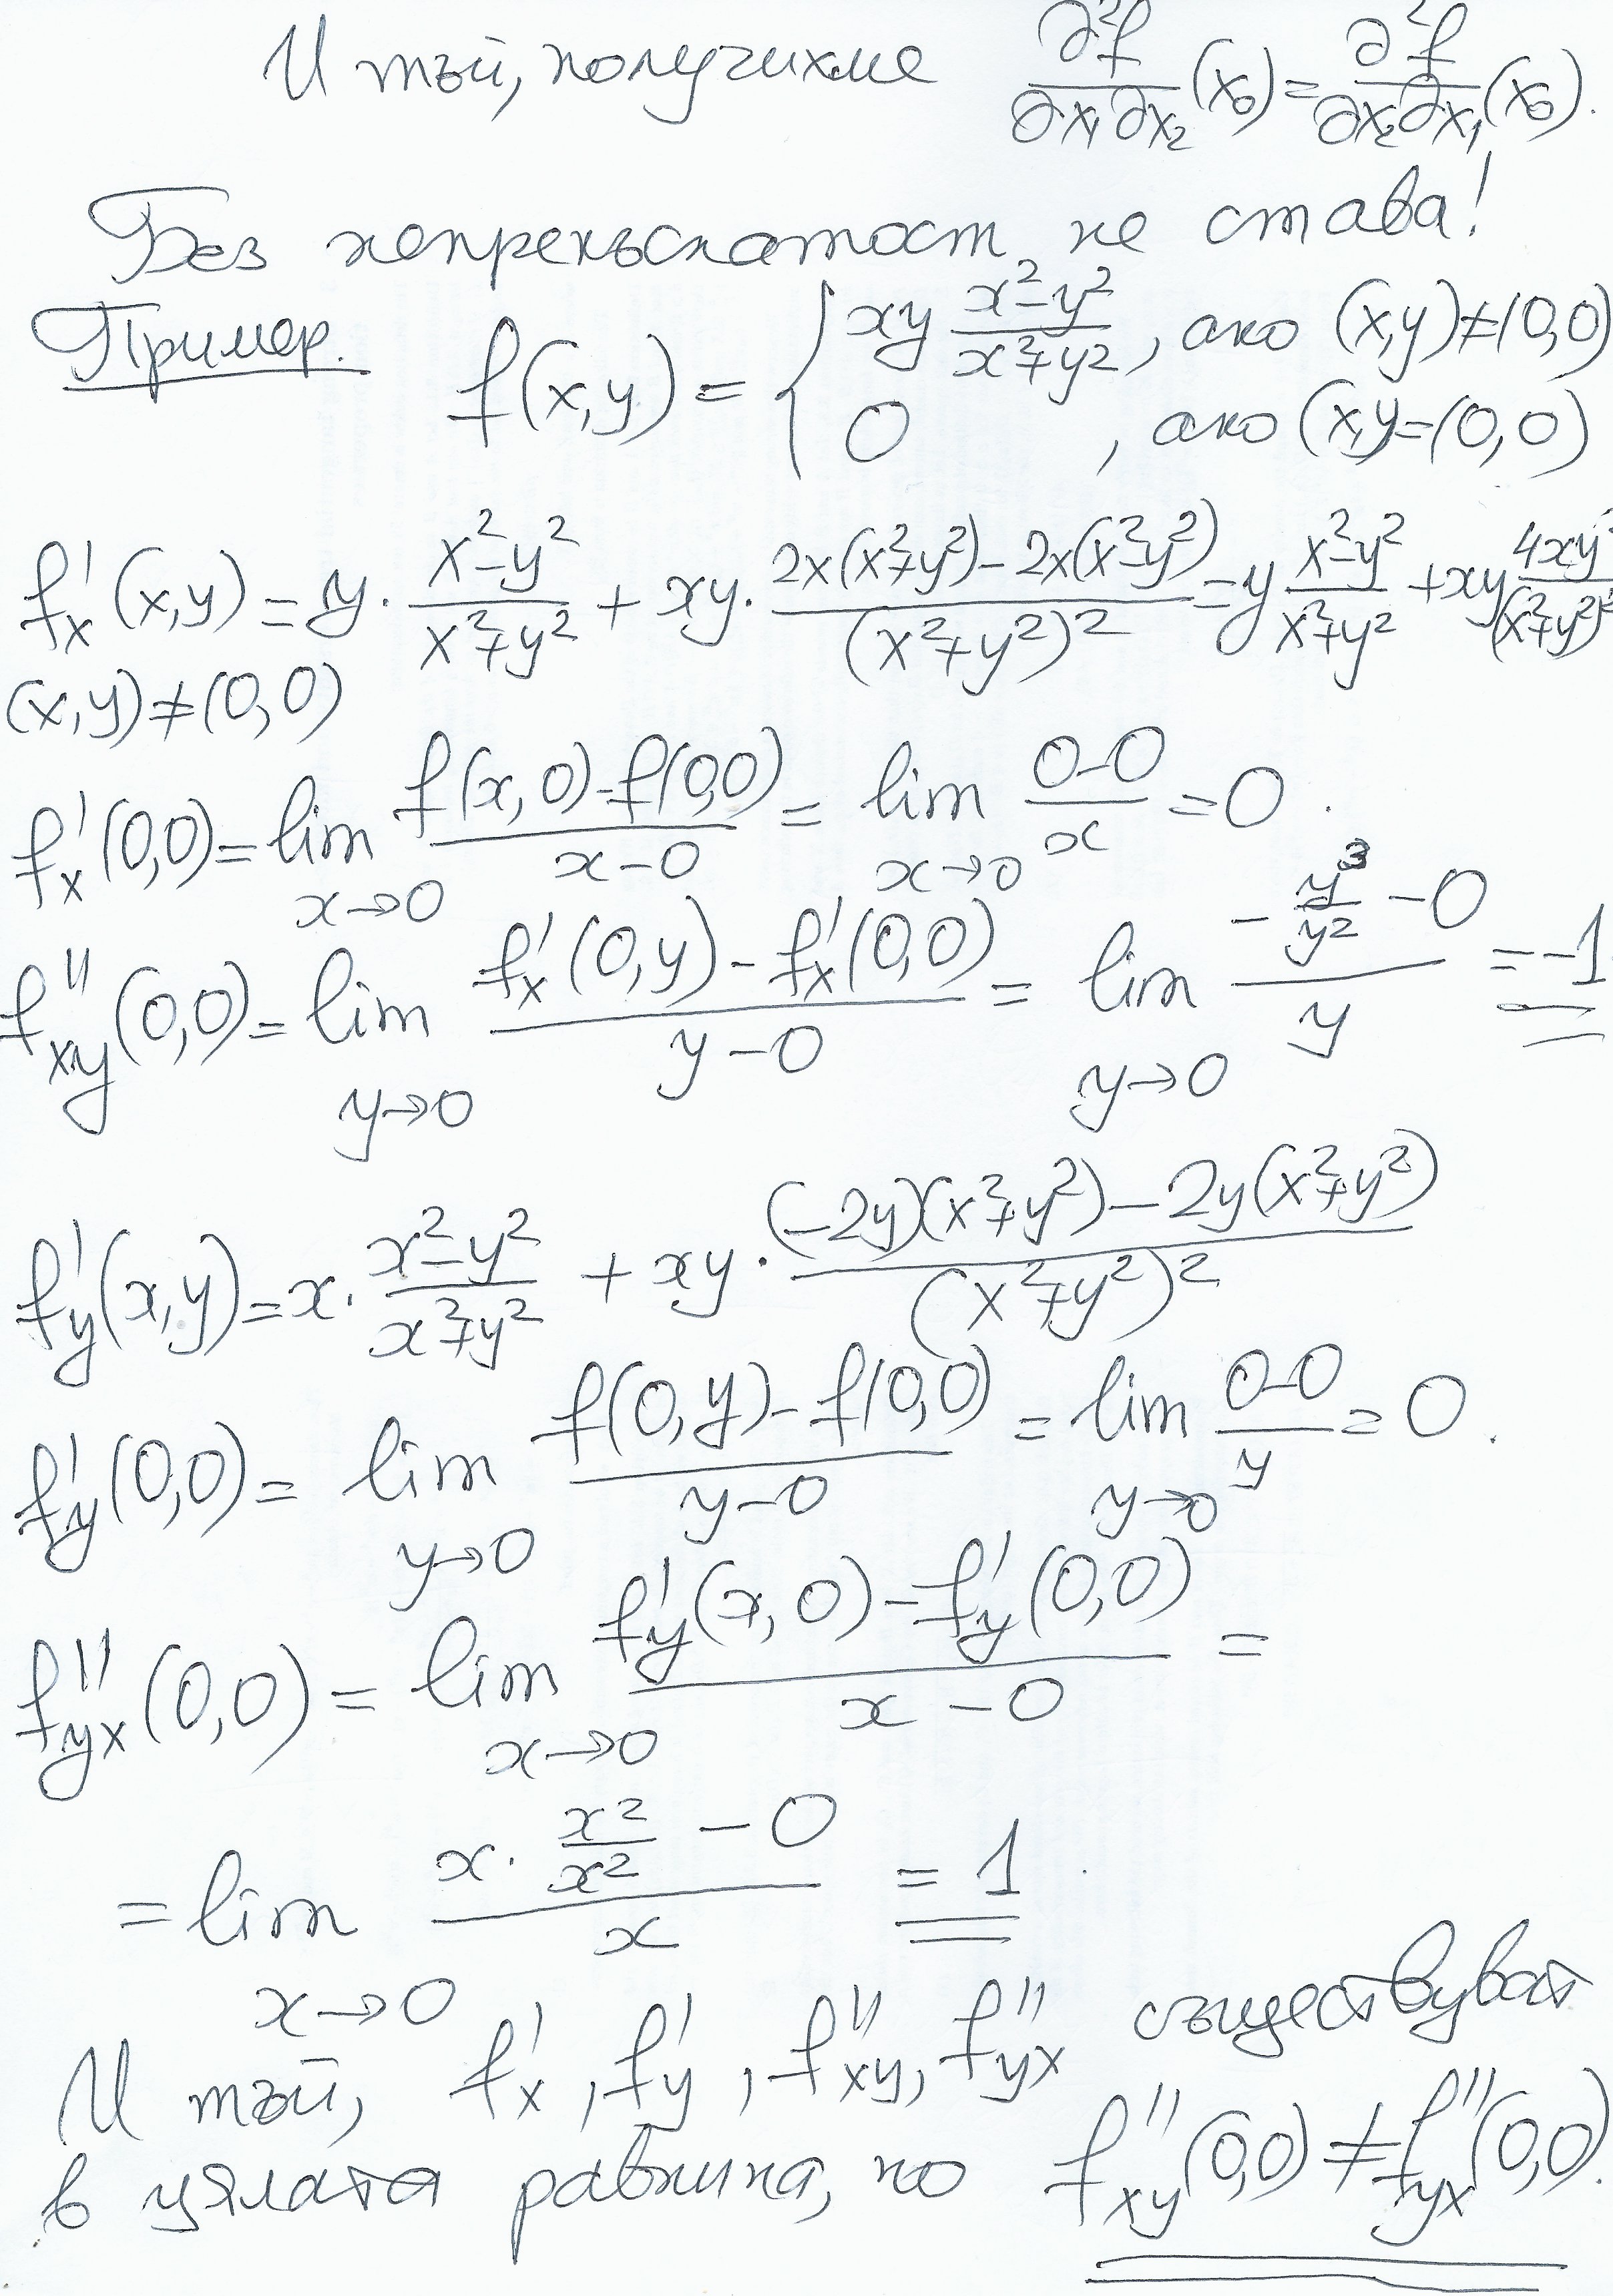 И тъй, получихме ∂²f/∂x₁∂x₂ (x₀) = ∂²f/∂x₂∂x₁ (x₀).
Без непрекъснатост не става!
Пример. f(x,y) = { xy (x²-y²)/(x²+y²), ако (x,y)≠(0,0)
0 , ако (x,y=(0,0)
f'x (x,y) = y · (x²-y²)/(x²+y²) + xy · (2x(x²+y²) - 2x(x²-y²))/(x²+y²)² = y (x²-y²)/(x²+y²) + xy 4xy²/(x²+y²)²
(x,y)≠(0,0)
f'x (0,0) = lim x→0 (f(x,0) - f(0,0))/(x-0) = lim x→0 (0-0)/x = 0.
f''xy (0,0) = lim y→0 (f'x (0,y) - f'x (0,0))/(y-0) = lim y→0 (-y³/y² - 0)/y = -1
f'y (x,y) = x · (x²-y²)/(x²+y²) + xy · ((-2y)(x²+y²) - 2y(x²+y²))/(x²+y²)²
f'y (0,0) = lim y→0 (f(0,y) - f(0,0))/(y-0) = lim y→0 (0-0)/y = 0.
f''yx (0,0) = lim x→0 (f'y (x,0) - f'y (0,0))/(x-0) =
= lim x→0 (x · x²/x² - 0)/x = 1.
И тъй, f'x, f'y, f''xy, f''yx съществуват
в цялата равнина, но f''xy (0,0) ≠ f''yx (0,0).